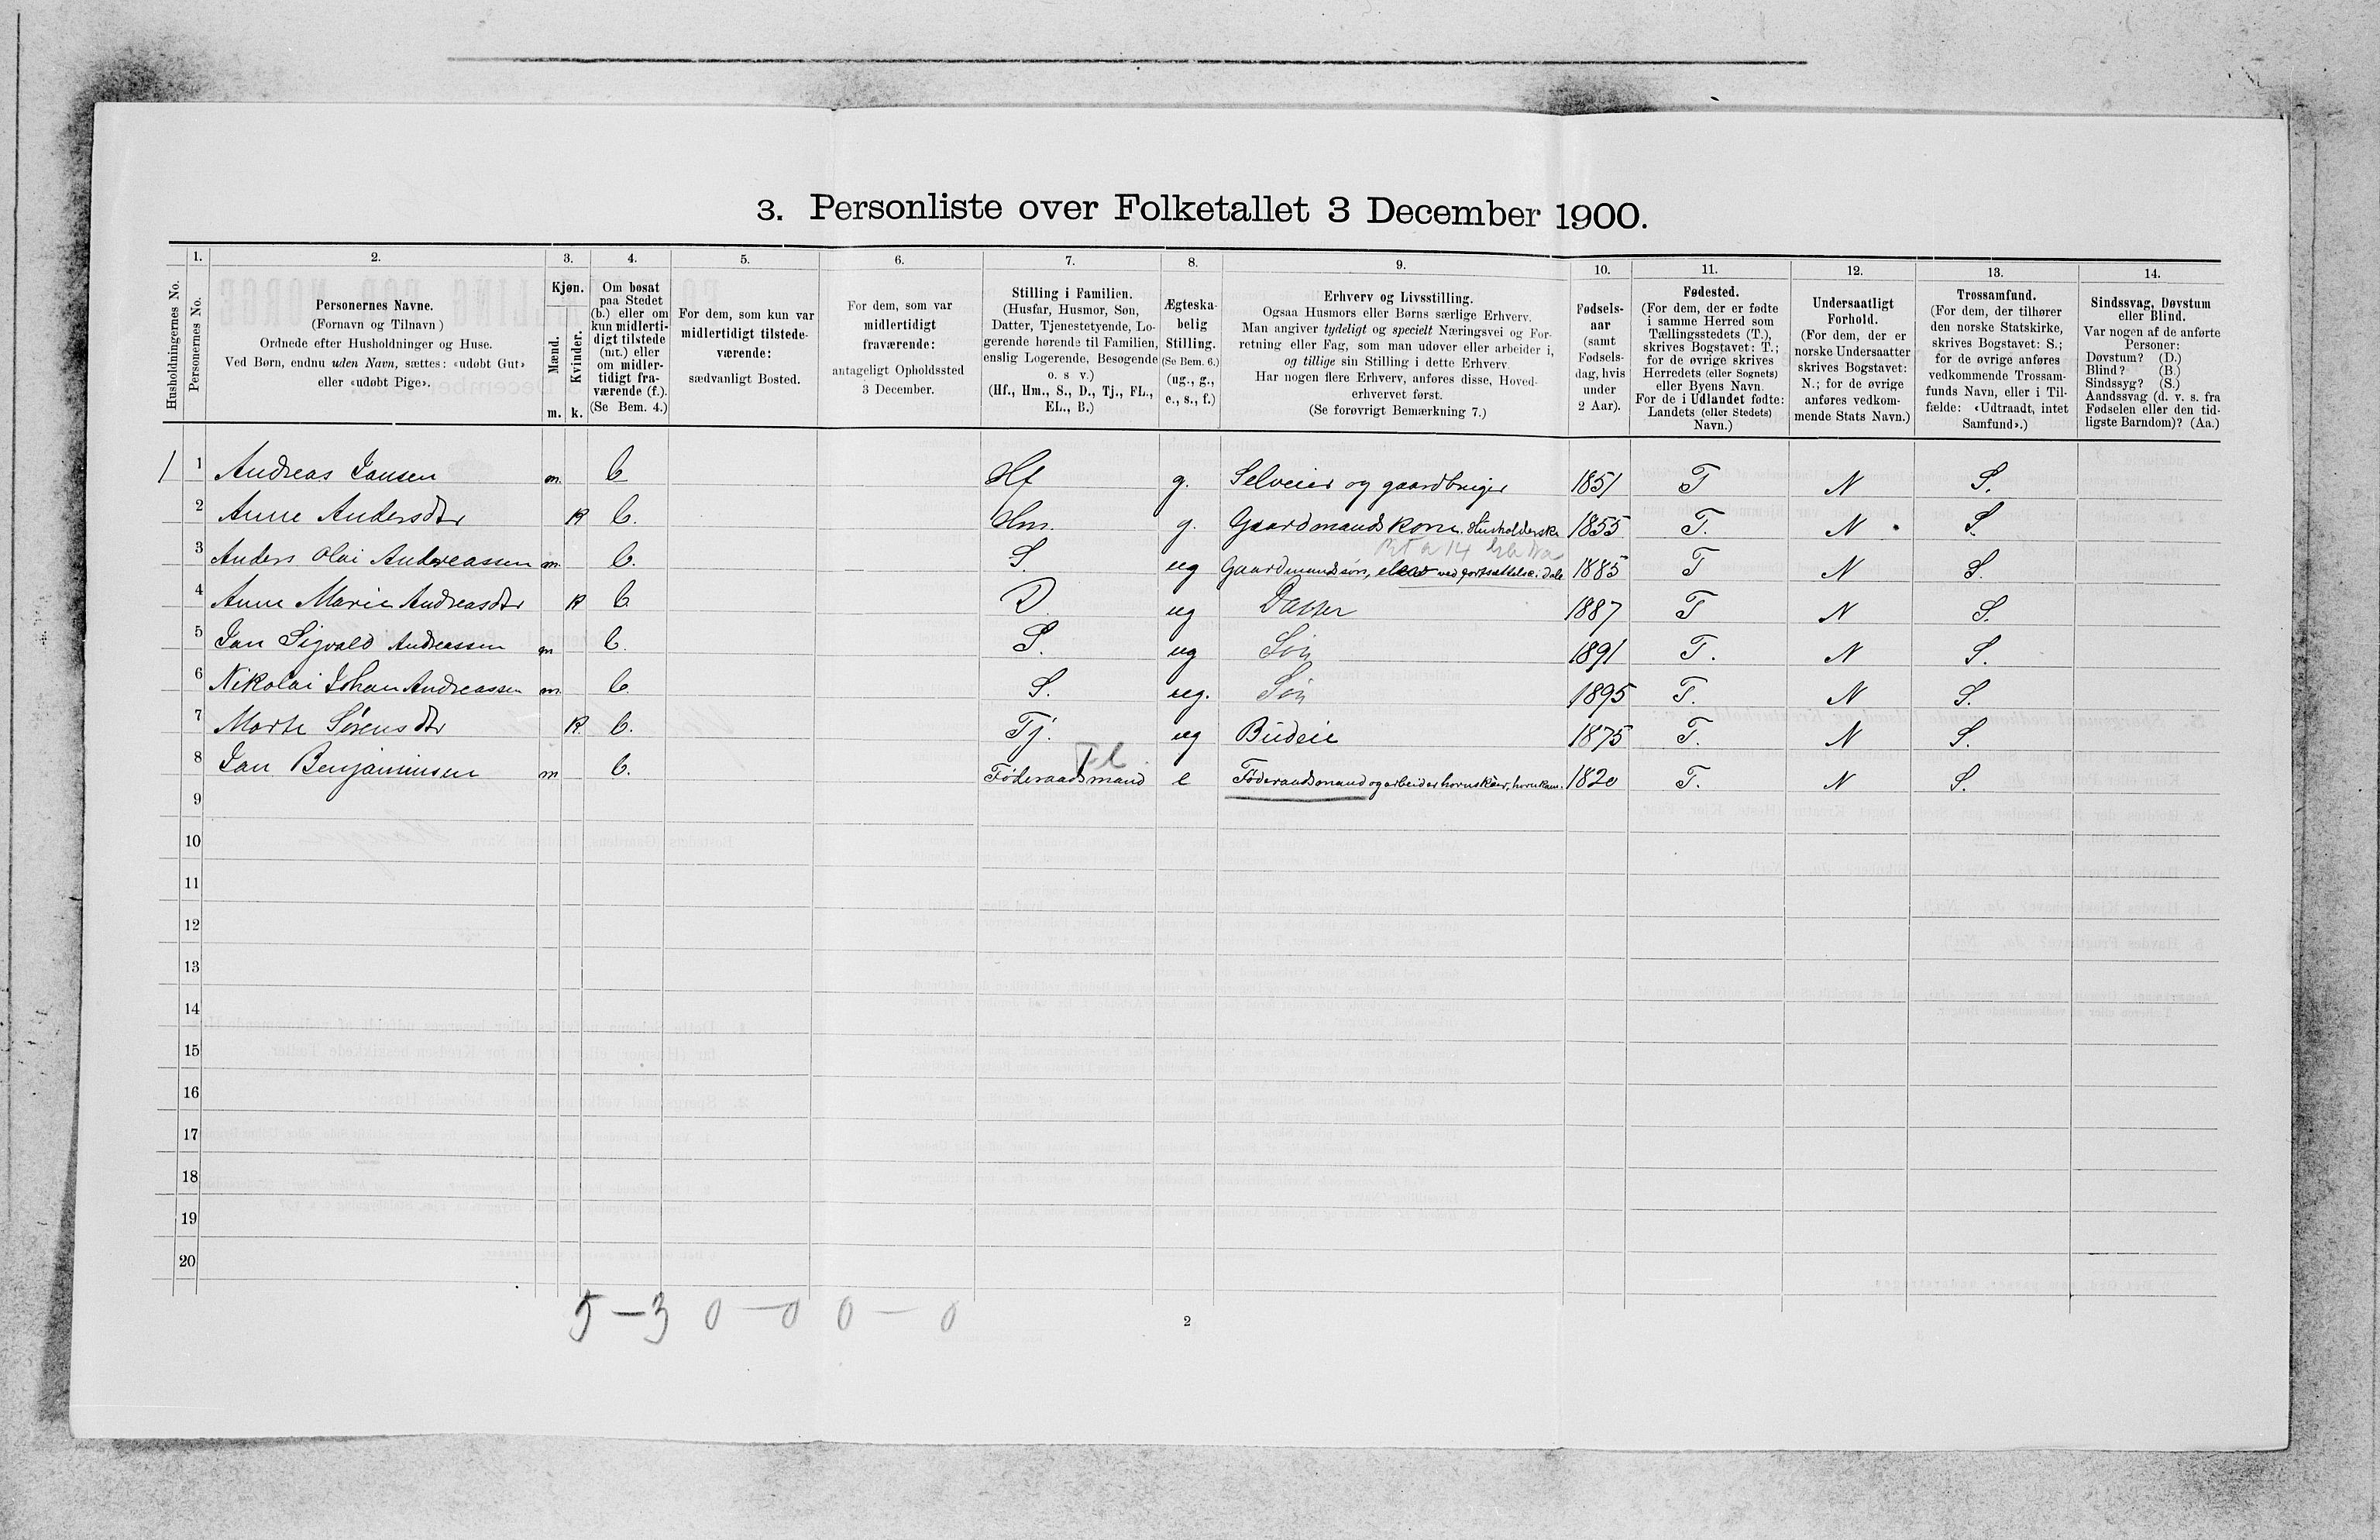 3. Personliste over Folketallet 3 December 1900.
1. 2. 3. 4. 5. 6. 7. 8. 9. 10. 11. 12. 13. 14.
Husholdningernes No.
Personernes No.
Personernes Navne.
(Fornavn og Tilnavn)
Ordnede efter Husholdninger og Huse.
Ved Børn, endnu uden Navn, sættes: «udøbt Gut»
eller «udøbt Pige».
Kjøn.
Mænd.
Kvinder.
m. k.
Om bosat
paa Stedet
(b.) eller om
kun midlerti-
digt tilstede
(mt.) eller
om midler-
tidigt fra-
værende (f.).
(Se Bem. 4.)
For dem, som kun var
midlertidigt tilstede-
værende:
sædvanligt Bosted.
For dem, som var
midlertidigt
fraværende:
antageligt Opholdssted
3 December.
Stilling i Familien.
(Husfar, Husmor, Søn,
Datter, Tjenestetyende, Lo-
gerende hørende til Familien,
enslig Logerende, Besøgende
o. s v.)
(Hf., Hm., S., D., Tj., FL.,
EL., B.)
Ægteska-
belig
Stilling.
(Se Bem. 6.)
(ug., g.,
e., s., f.)
Erhverv og Livsstilling.
Ogsaa Husmors eller Børns særlige Erhverv.
Man angiver tydeligt og specielt Næringsvei og For-
retning eller Fag, som man udøver eller arbeider i,
og tillige sin Stilling i dette Erhverv.
Har nogen flere Erhverv, anføres disse, Hoved-
erhvervet først.
(Se forøvrigt Bemærkning 7.)
Fødsels-
aar
(samt
Fødsels-
dag, hvis
under
2 Aar).
Fødested.
(For dem, der er fødte
i samme Herred som
Tællingsstedets (T.),
skrives Bogstavet: T.;
for de øvrige skrives
Herredets (eller Sognets)
eller Byens Navn.
For de i Udlandet fødte:
Landets (eller Stedets)
Navn.)
Undersaatligt
Forhold.
(For dem, der er
norske Undersaatter
skrives Bogstavet:
N.; for de øvrige
anføres vedkom-
mende Stats Navn.)
Trossamfund.
(For dem, der tilhører
den norske Statskirke,
skrives Bogstavet: S.;
for de øvrige anføres
vedkommende Trossam-
funds Navn, eller i Til-
fælde: «Udtraadt, intet
Samfund».)
Sindssvag, Døvstum
eller Blind.
Var nogen af de anførte
Personer:
Døvstum? (D.)
Blind? (B.)
Sindssyg? (S.)
Aandssvag (d. v. s. fra
Fødselen eller den tid-
ligste Barndom)? (Aa.)
1 1 Andreas Jansen m. b Hf g. Selveier og gaardbruger 1851 T N S.
2 Anne Andersdtr k b. Hm. g. Gaardmandskone. Husholderske 1855 T. N S
3 Anders Olai Andreassen m. b. S. ug Gaardmandssøn, elev ved fortsættelse i Dale 1885 T N S.
4 Anne Marie Andreasdtr k b D. ug Datter 1887 T N S.
5 Jan Sigvald Andreassen m b. S. ug Søn 1891 T. N S.
6 Nikolai Johan Andreassen m. b. S. ug. Søn 1895 T. N S.
7 Marte Sørensdtr k b. Tj. ug Budeie 1875 T. N S.
8 Jan Benjaminsen m b. Føderaadsmand Fl e Føderaadsmand og arbeider hornskeer, hornkam. 1820 T. N S.
9
10
11
12
13
14
15
16
17
18
19
20
5 – 3 0 – 0 0 – 0
2